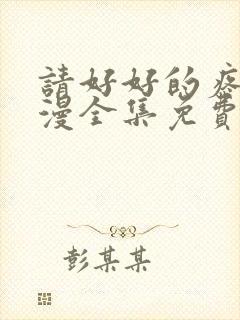 請好好的疼
漫全集免費
彭某某